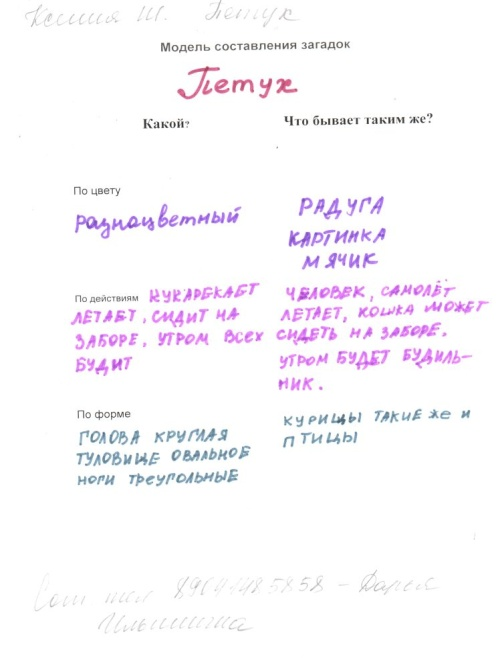 Ксения Ш. Петух
Модель составления загадок
Петух
Какой?
Что бывает таким же?
По цвету
разноцветный
РАДУГА
КАРТИНКА
МЯЧИК
По действиям КУКАРЕКАЕТ
ЛЕТАЕТ, СИДИТ НА
ЗАБОРЕ, УТРОМ ВСЕХ
БУДИТ
ЧЕЛОВЕК, САМОЛЁТ
ЛЕТАЕТ, КОШКА МОЖЕТ
СИДЕТЬ НА ЗАБОРЕ.
УТРОМ БУДЕТ БУДИЛЬ-
НИК.
По форме
ГОЛОВА КРУГЛАЯ
ТУЛОВИЩЕ ОВАЛЬНОЕ
НОГИ ТРЕУГОЛЬНЫЕ
КУРИЦЫ ТАКИЕ же И
ПТИЦЫ
Сот тел - Дарья